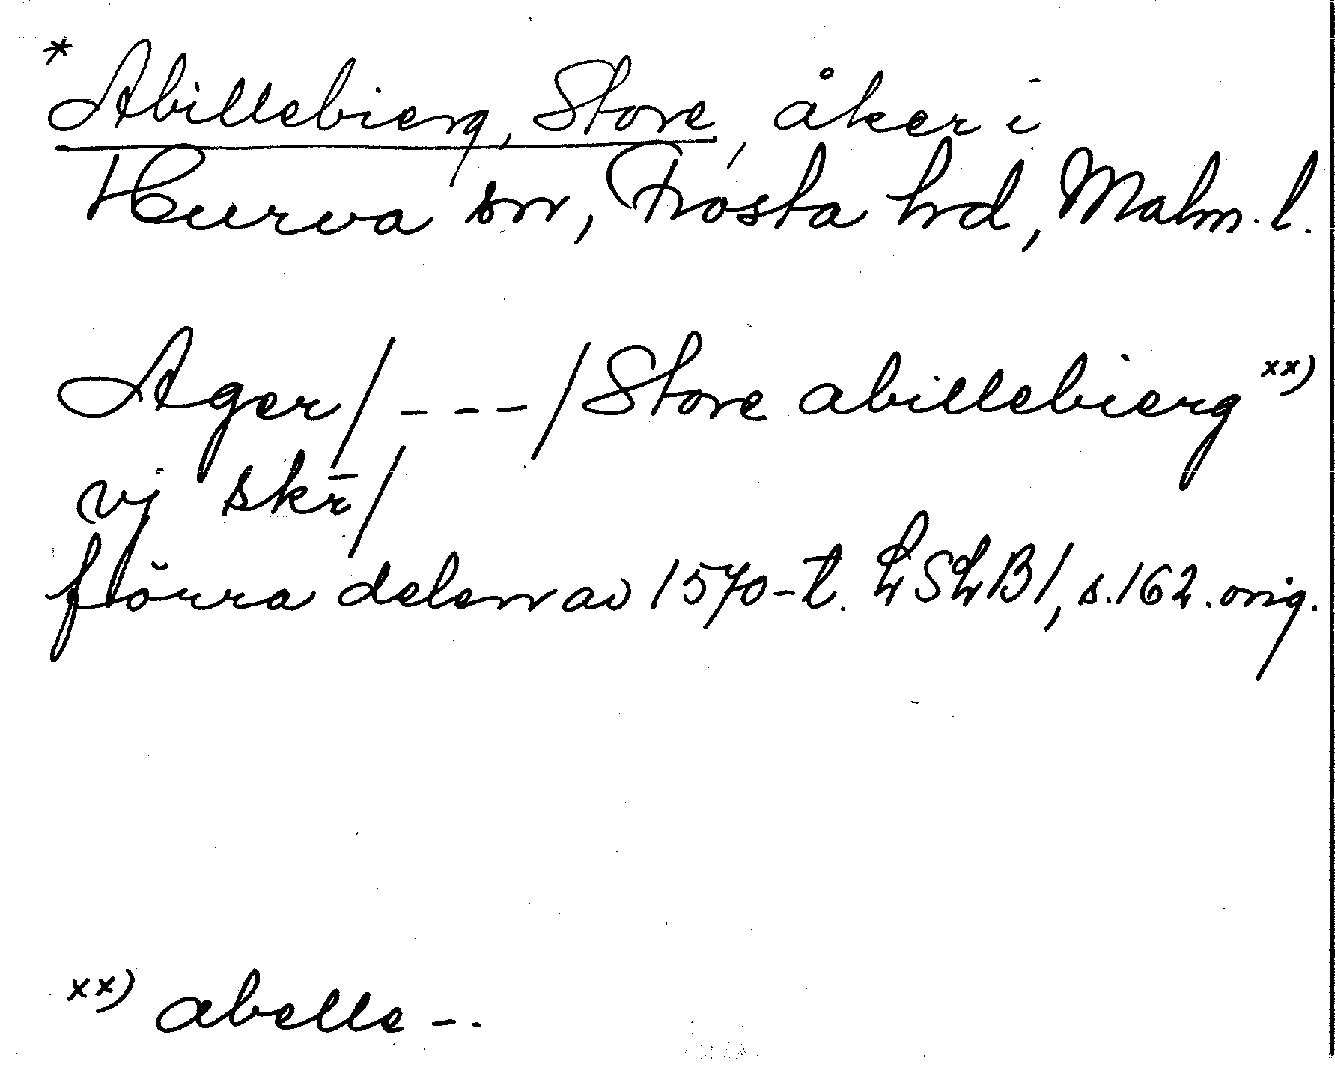 * Abillebierg, Store, åker i
Hurva sn, Frosta hd, Malm. l.
Ager/---/Store abillebierg xx)
vj skr̄/
förra delen av 1570-t. LSLB1, s.162. orig.
xx) abelle--.